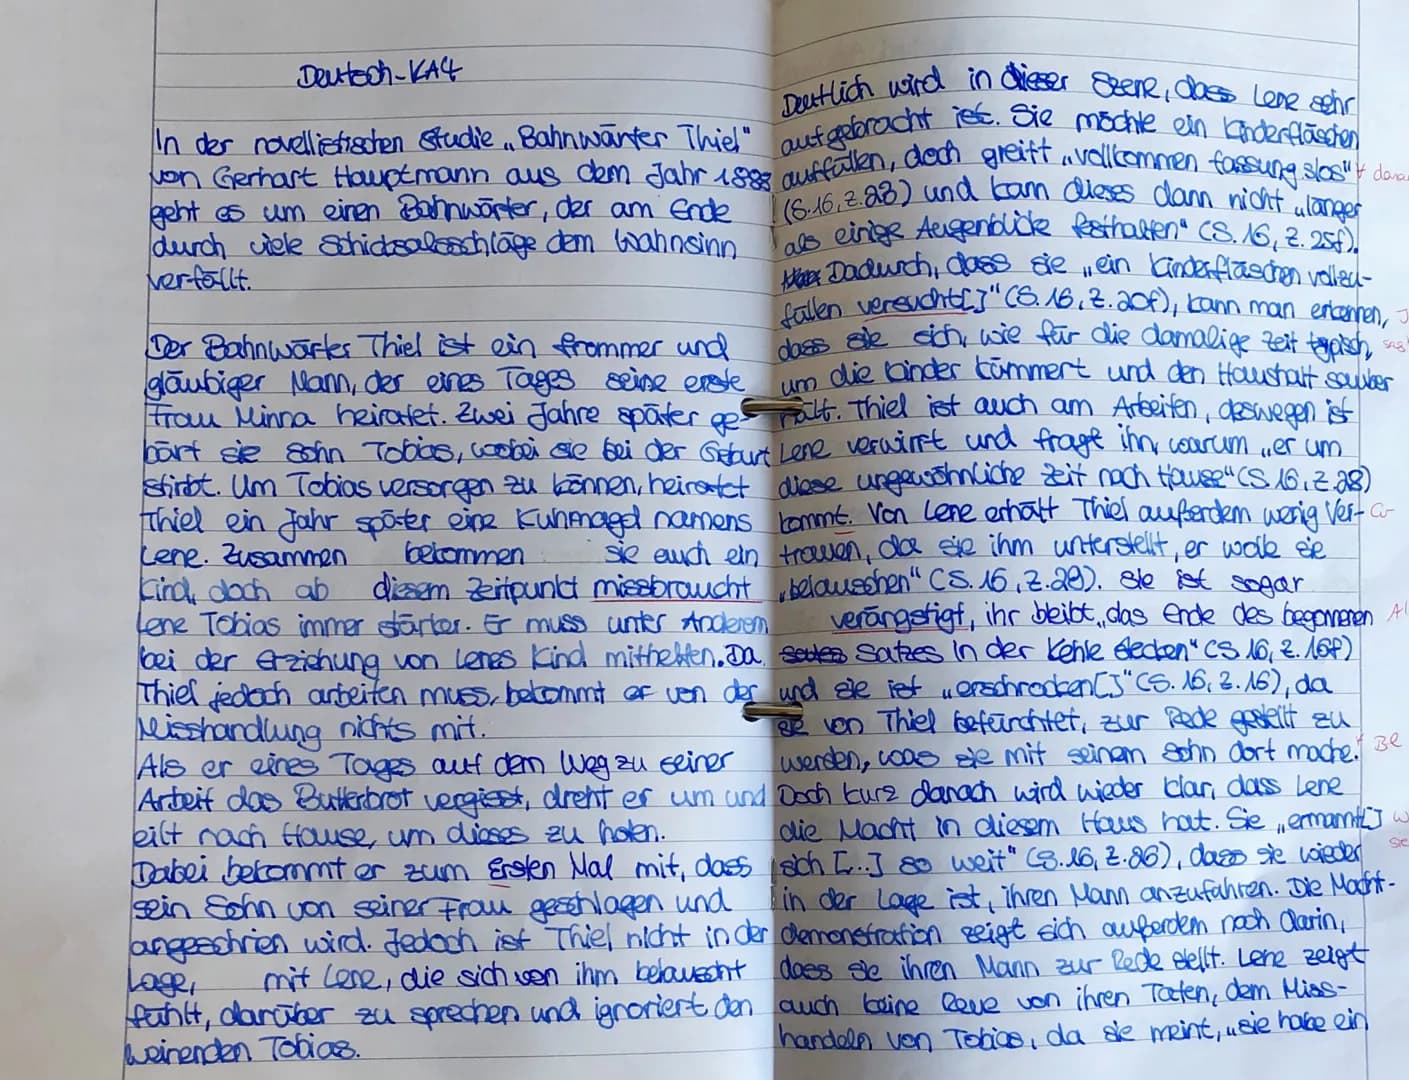 Deutsch-KA4
In der novellistischen Studie „Bahnwärter Thiel"
von Gerhart Hauptmann aus dem Jahr 1888
geht es um einen Bahnwärter, der am Ende
durch viele Schicksalsschläge dem Wahnsinn
verfällt.
Der Bahnwärter Thiel ist ein frommer und
gläubiger Mann, der eines Tages seine erste
Frau Minna heiratet. Zwei Jahre später ge-
bärt sie Sohn Tobias, wobei sie bei der Geburt
stirbt. Um Tobias versorgen zu können, heiratet
Thiel ein Jahr später eine Kuhmagd namens
Lene. Zusammen bekommen sie auch ein
Kind, doch ab diesem Zeitpunkt missbraucht
Lene Tobias immer stärker. Er muss unter Anderem
bei der Erziehung von Lenes Kind mithelfen. Da
Thiel jedoch arbeiten muss, bekommt er von der
Misshandlung nichts mit.
Als er eines Tages auf dem Weg zu seiner
Arbeit das Butterbrot vergisst, dreht er um und
eilt nach Hause, um dieses zu holen.
Dabei bekommt er zum Ersten Mal mit, dass
sein Sohn von seiner Frau geschlagen und
angeschrien wird. Jedoch ist Thiel nicht in der
Lage, mit Lene, die sich von ihm belauscht
fühlt, darüber zu sprechen und ignoriert den
weinenden Tobias.
Deutlich wird in dieser Szene, dass Lene sehr
aufgebracht ist. Sie möchte ein Kinderfläschen
auffüllen, doch greift „vollkommen fassungslos"
(S.16, Z.23) und kam dieses dann nicht „länger
als einige Augenblicke festhalten" (S. 16, Z. 25f).
Dadurch, dass sie „ein Kinderfläschen vollzu-
füllen versucht[]" (S. 16, Z. 20f), kann man erkennen,
dass sie sich, wie für die damalige Zeit typisch,
um die Kinder kümmert und den Haushalt sauber
hält. Thiel ist auch am Arbeiten, deswegen ist
Lene verwirrt und fragt ihn, warum „er um
diese ungewöhnliche Zeit nach Hause" (S.16, Z.28)
kommt. Von Lene erhält Thiel außerdem wenig Ver-
trauen, da sie ihm unterstellt, er wolle sie
„belauschen" (S. 16, Z.29). Sie ist sogar
verängstigt, ihr bleibt „das Ende des begonnenen
Satzes in der Kehle stecken" (S 16, Z. 16f)
und sie ist „erschrocken[]" (S. 16, Z. 16), da
sie von Thiel befürchtet, zur Rede gestellt zu
werden, was sie mit seinem Sohn dort mache.
Doch kurz danach wird wieder klar, dass Lene
die Macht in diesem Haus hat. Sie „ermannt[]
sich [...] so weit" (S.16, Z.26), dass sie wieder
in der Lage ist, ihren Mann anzufahren. Die Macht-
demonstration zeigt sich außerdem noch darin,
dass sie ihren Mann zur Rede stellt. Lene zeigt
auch keine Reue von ihren Taten, dem Miss-
handeln von Tobias, da sie meint, „sie habe ein